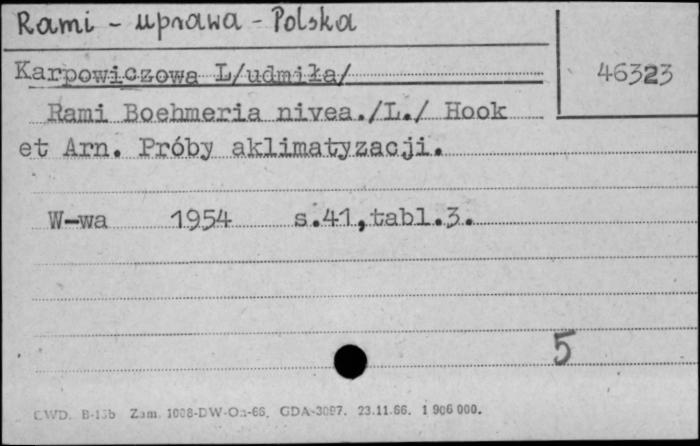 Rami - uprawa - Polska
46323
Karpowiczowa L/udmiła/
Rami Boehmeria nivea./L./ Hook
et Arn. Próby aklimatyzacji.
W-wa 1954 s.41,tabl.3.
5
CWD. Zam. 1008-DW-Oa-66. GDA-3097. 23.11.66. 1 906 000.